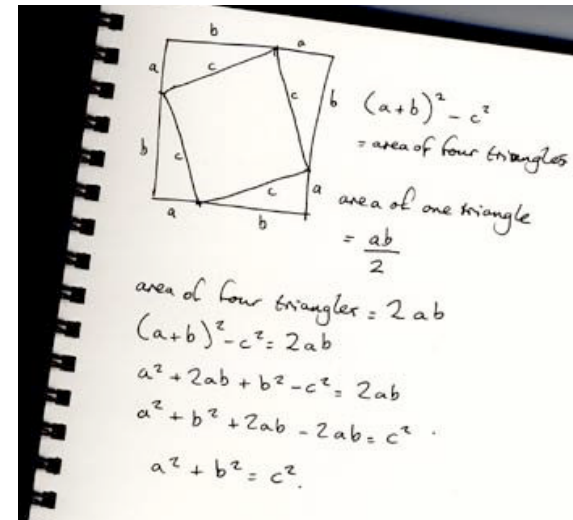 b a
a c
c b
b c
c a
a b
(a+b)² - c²
= area of four triangles
area of one triangle
= ab
2
area of four triangles = 2ab
(a+b)² - c² = 2ab
a² + 2ab + b² - c² = 2ab
a² + b² + 2ab - 2ab = c²
a² + b² = c².